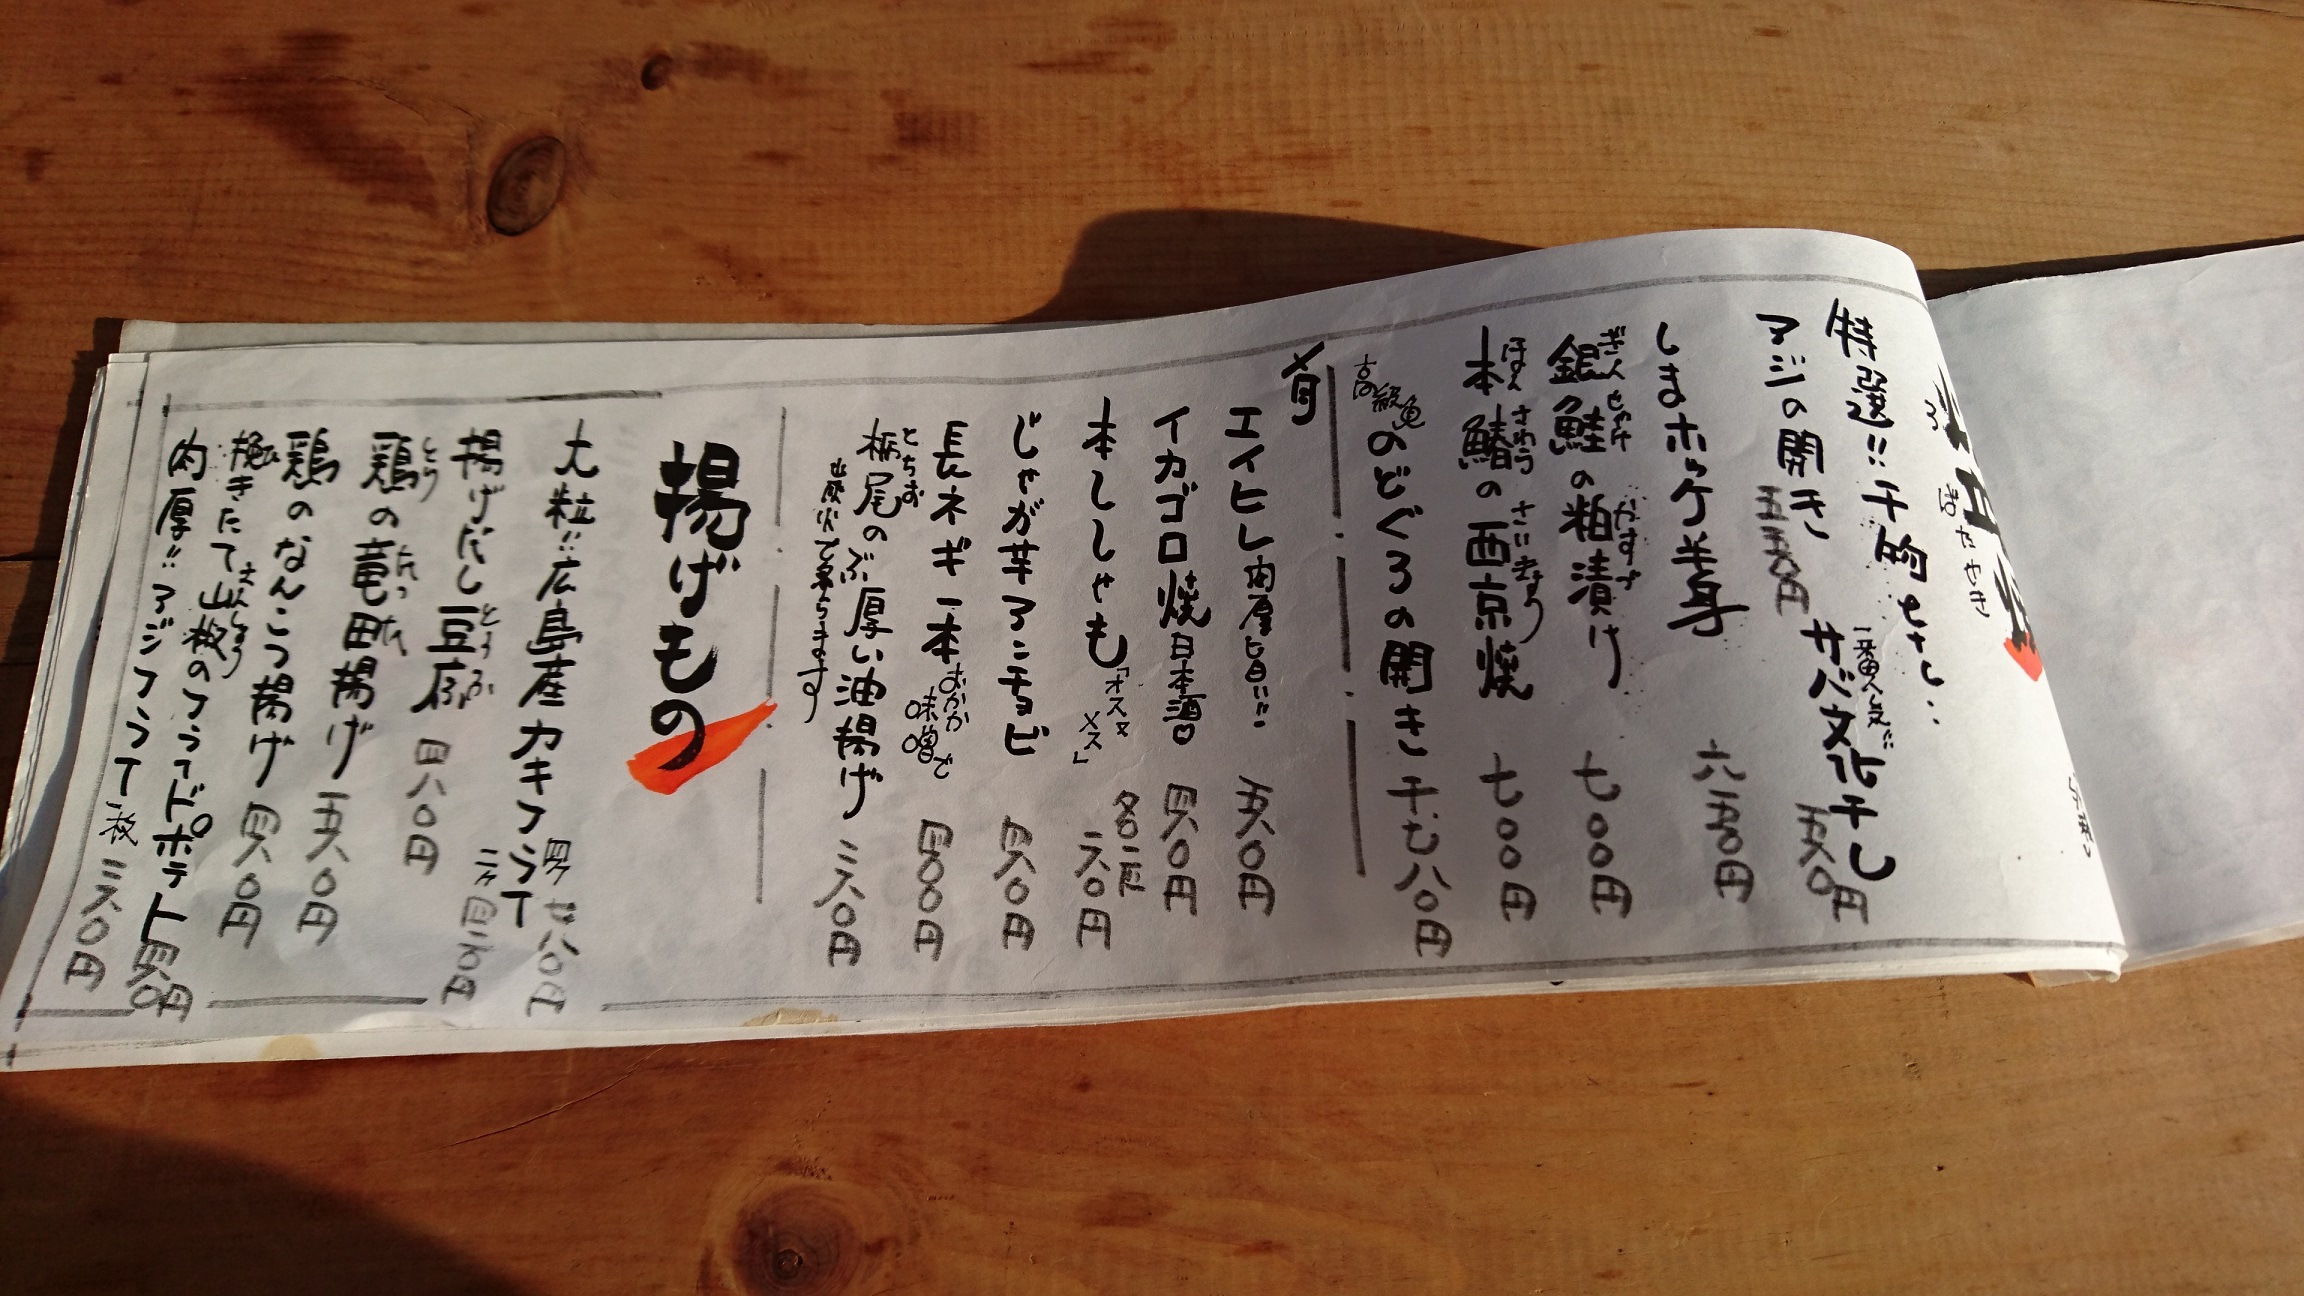 ろばたやき
特選!!干物セレ..
一番人気!!
サバ文化干し 五八〇円
アジの開き 五五〇円
しまホッケ半身 六五〇円
ぎんじゃけ かすづ
銀鮭の粕漬け 七〇〇円
ほんさわら さいきょう
本鰆の西京焼 七〇〇円
高級魚
のどぐろの開き 千七八〇円
肴
エイヒレ肉厚旨!!! 五八〇円
イカゴロ焼日本酒 四八〇円
本ししゃも「オスヌメス」各二匹 三八〇円
じゃが芋アンチョビ 四八〇円
長ネギ一本おかかで味噌で 四〇〇円
とちお
栃尾のぶ厚い油揚げ 三八〇円
炭火で炙ります
揚げもの
大粒!!広島産カキフライ 四ケ 七八〇円
二ケ 四二〇円
とうふ
揚げだし豆腐 四八〇円
とり たつた
鶏の竜田揚げ 五八〇円
鶏のなんこつ揚げ 四八〇円
さんしょう
挽きたて山椒のフライドポテト 四八〇円
肉厚!!アジフライ 一枚 三八〇円